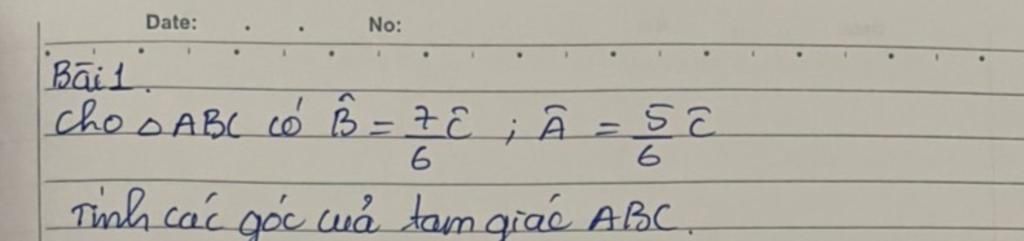 Date: . . No:
Bài 1.
Cho △ABC có B̂ = 7/6 Ĉ ; Â = 5/6 Ĉ
Tính các góc cuả tam giác ABC.